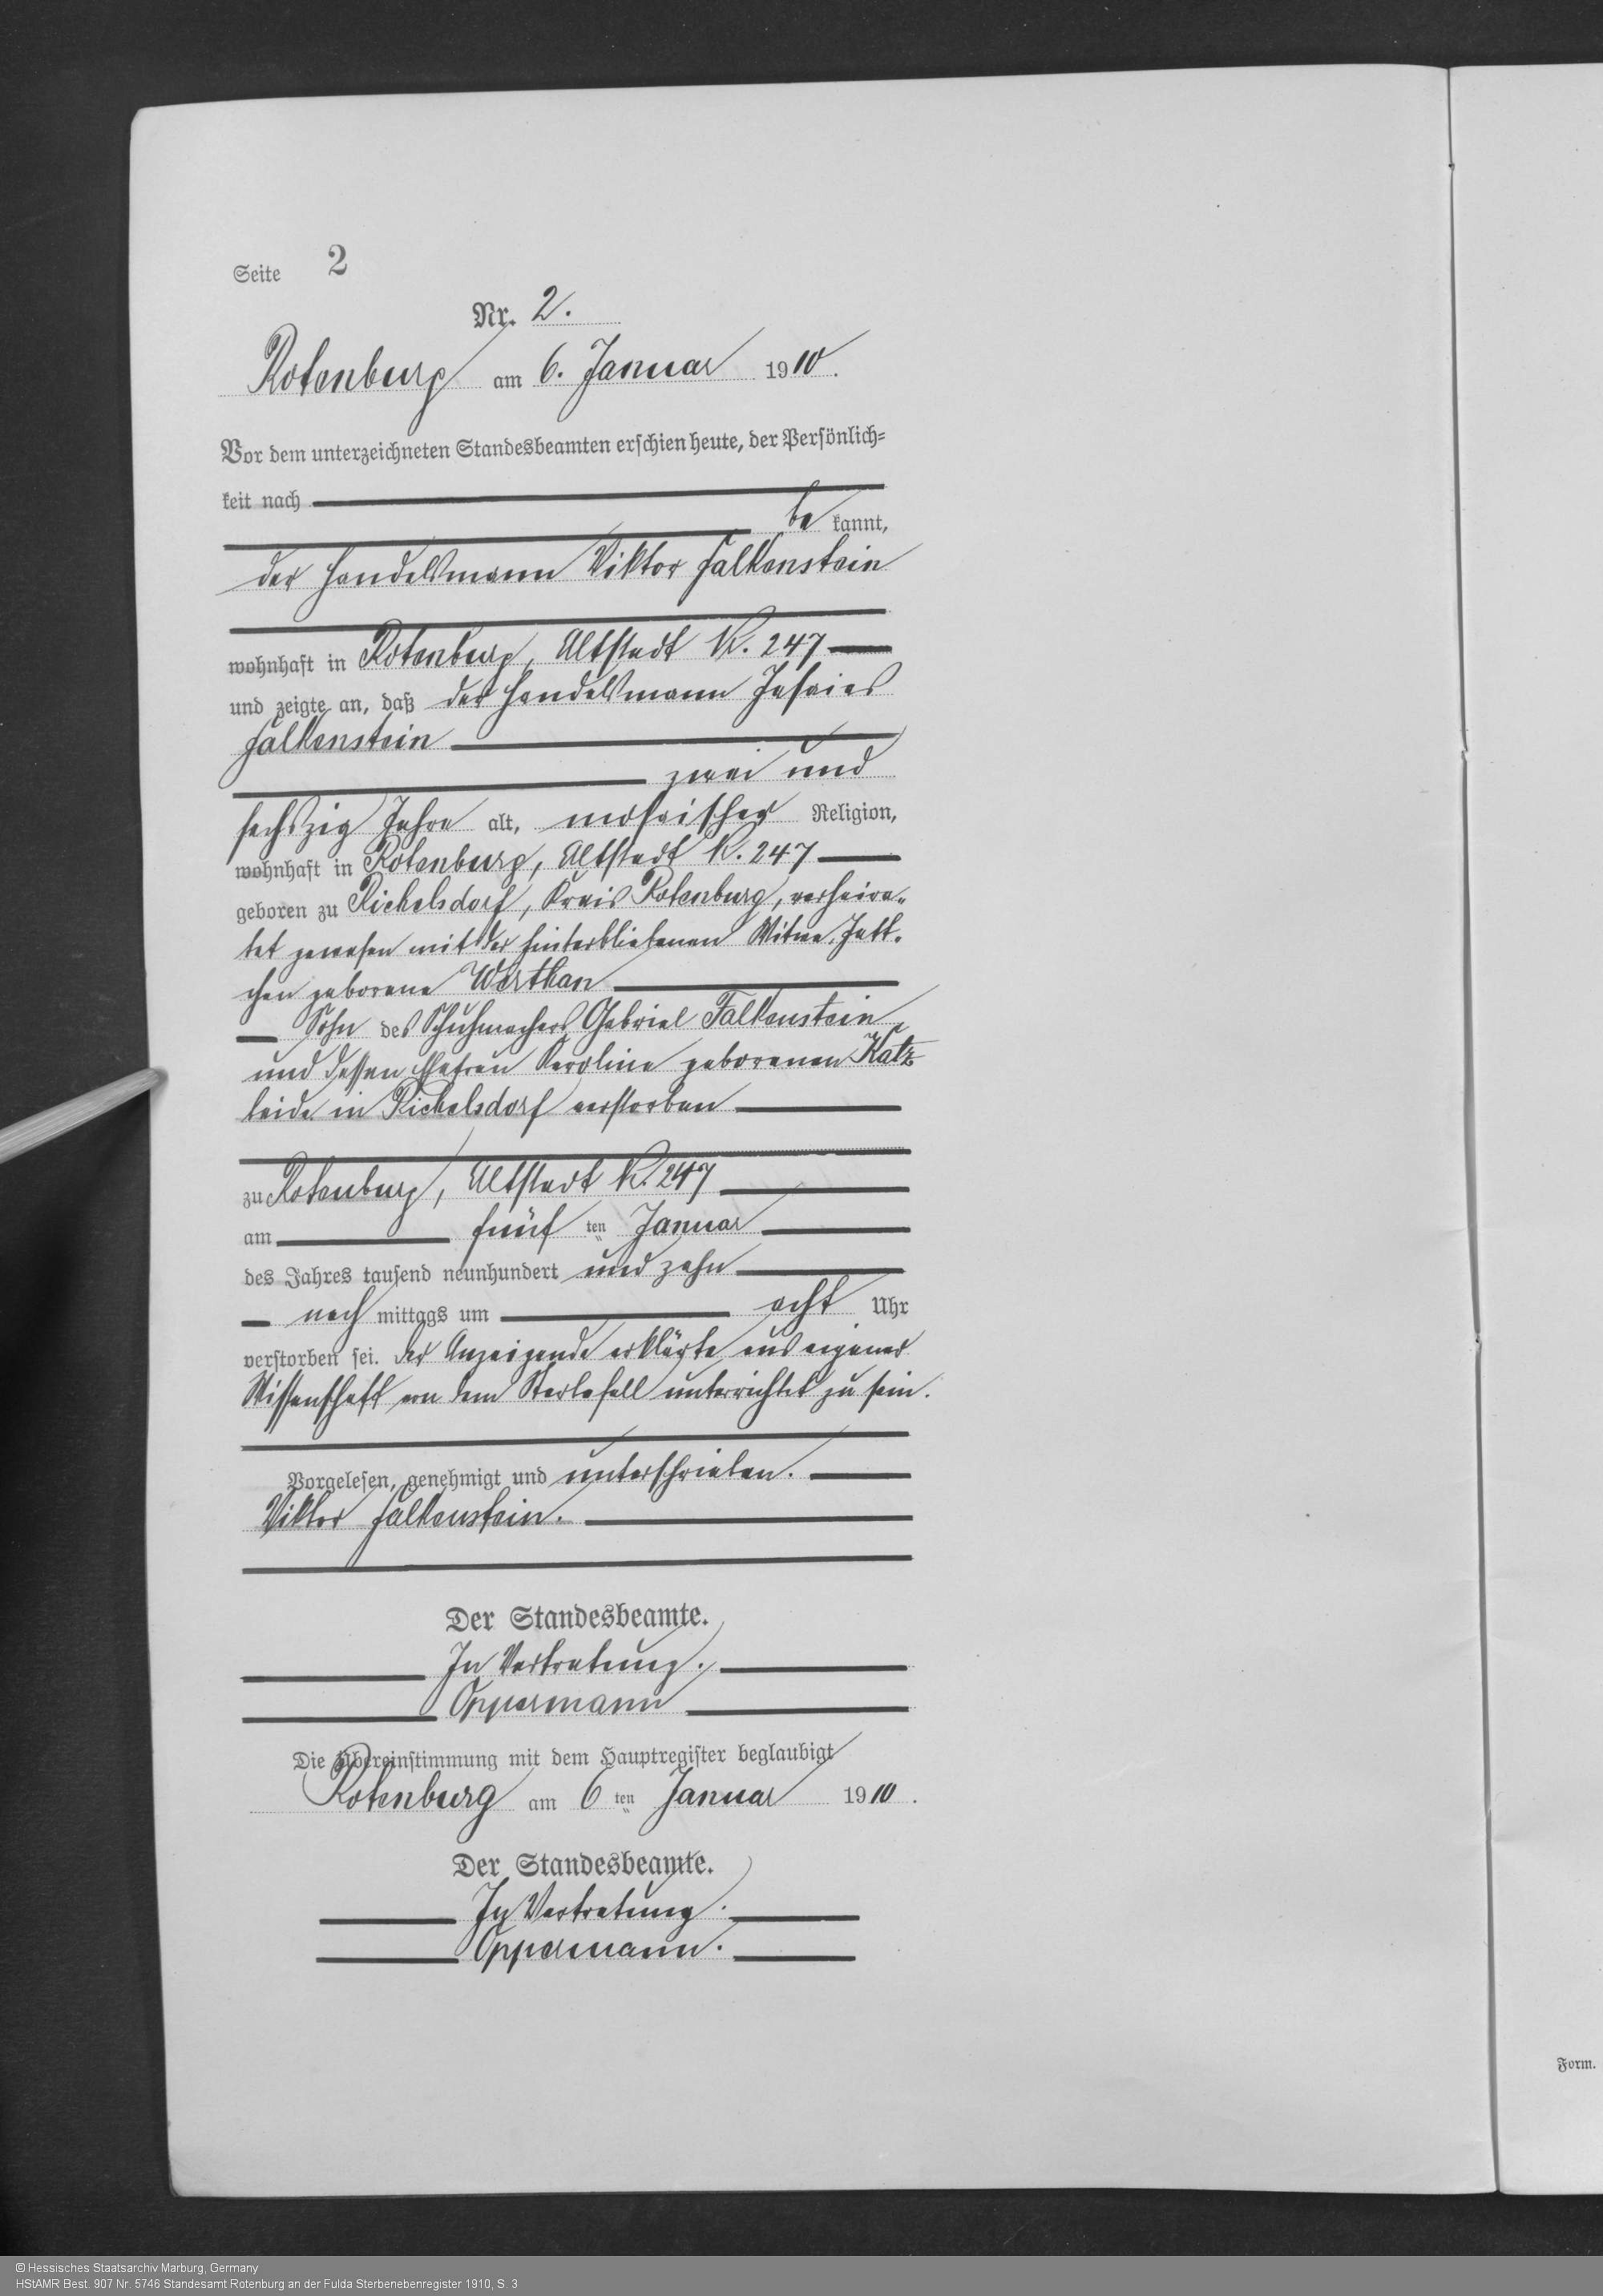 Seite 2
Nr. 2.
Rotenburg am 6. Januar 1910.
Vor dem unterzeichneten Standesbeamten erschien heute, der Persönlich=
keit nach
be kannt,
der Handelsmann Viktor Falkenstein
wohnhaft in Rotenburg, Altstadt Nr. 247
und zeigte an, daß der Handelsmann Jesaias
Falkenstein
zwei und
sechszig Jahre alt, mosaischer Religion,
wohnhaft in Rotenburg, Altstadt Nr. 247
geboren zu Richelsdorf, Kreis Rotenburg, verheira„
tet gewesen mit der hinterbliebenen Witwe, Jett„
chen geborene Werthan
Sohn des Schuhmachers Gabriel Falkenstein
und dessen Ehefrau Karoline geborenen Katz
beide in Richelsdorf verstorben
zu Rotenburg, Altstadt Nr. 247
am fünf ten Januar
des Jahres tausend neunhundert und zehn
nach mittags um acht Uhr
verstorben sei. Der Anzeigende erklärte aus eigener
Wissenschaft von dem Sterbefall unterrichtet zu sein.
Vorgelesen, genehmigt und unterschrieben.
Viktor Falkenstein.
Der Standesbeamte.
In Vertretung.
Oppermann
Die Übereinstimmung mit dem Hauptregister beglaubigt
Rotenburg am 6 ten Januar 1910.
Der Standesbeamte.
In Vertretung.
Oppermann.
Form.
© Hessisches Staatsarchiv Marburg, Germany
HStAMR Best. 907 Nr. 5746 Standesamt Rotenburg an der Fulda Sterbenebenregister 1910, S. 3